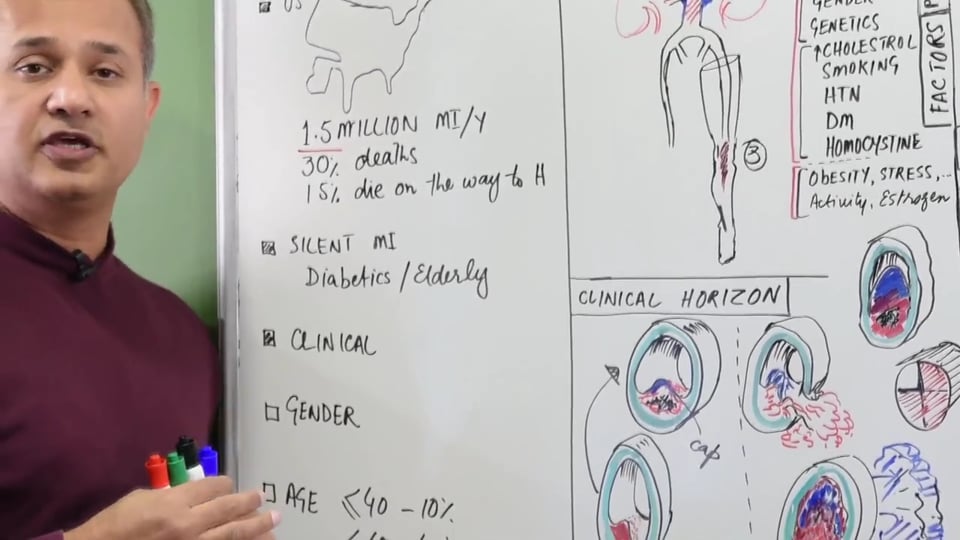 US
1.5 MILLION MI/Y
30% deaths
15% die on the way to H
SILENT MI
Diabetics / Elderly
CLINICAL
GENDER
AGE ≤40 - 10%
3
GENDER
GENETICS
↑CHOLESTROL
SMOKING
HTN
DM
HOMOCYSTINE
OBESITY, STRESS,..
Activity, Estrogen
FACTORS
CLINICAL HORIZON
cap